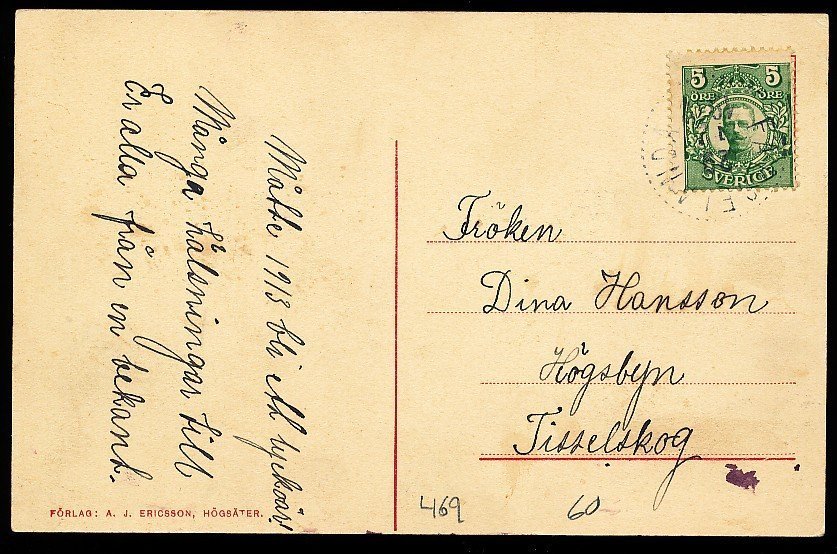 Måtte 1913 bli ett lyckoår!
Många hälsningar till
Er alla från en bekant.
5 5
ÖRE ÖRE
SVERIGE
Fröken
Dina Hansson
Högsbyn
Tisselskog
469 60
FÖRLAG: A. J. ERICSSON, HÖGSÄTER.